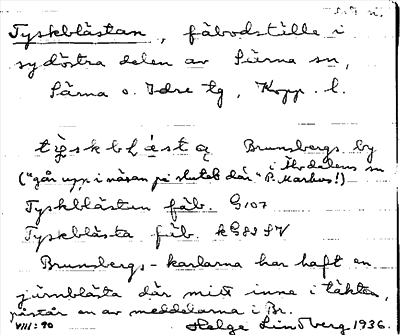 Tyskblästan, fäbodställe i
sydöstra delen av Särna sn,
Särna o. Idre tg, Kopp. l.
Brunsbergs by
i Älvdalens sn
("går upp i näsan på slutet där" P. Markus!)
Tyskblästan fäb. G107
Tyskblästa fäb. kG82 SV
Brunsbergs-karlarna har haft en
järnblästa där mitt inne i täkten,
påstår en av meddelarna i Br.
VIII:90 Helge Lindberg 1936.